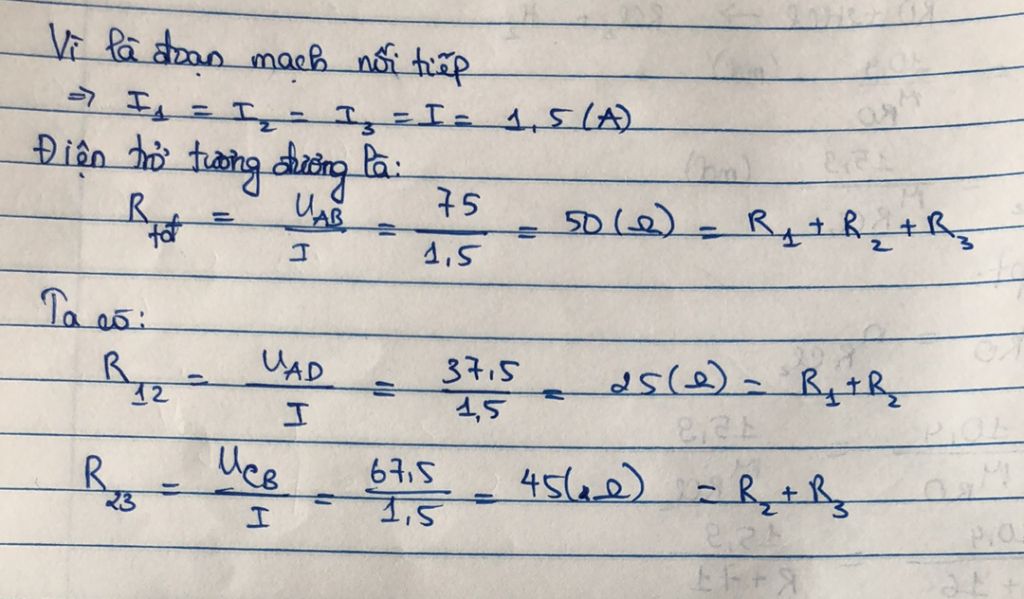 Vì là đoạn mạch nối tiếp
⇒ I₁ = I₂ = I₃ = I = 1,5 (A)
Điện trở tương đương là:
R_tđ = U_AB / I = 75 / 1,5 = 50 (Ω) = R₁ + R₂ + R₃
Ta có:
R₁₂ = U_AD / I = 37,5 / 1,5 = 25 (Ω) = R₁ + R₂
R₂₃ = U_CB / I = 67,5 / 1,5 = 45 (Ω) = R₂ + R₃